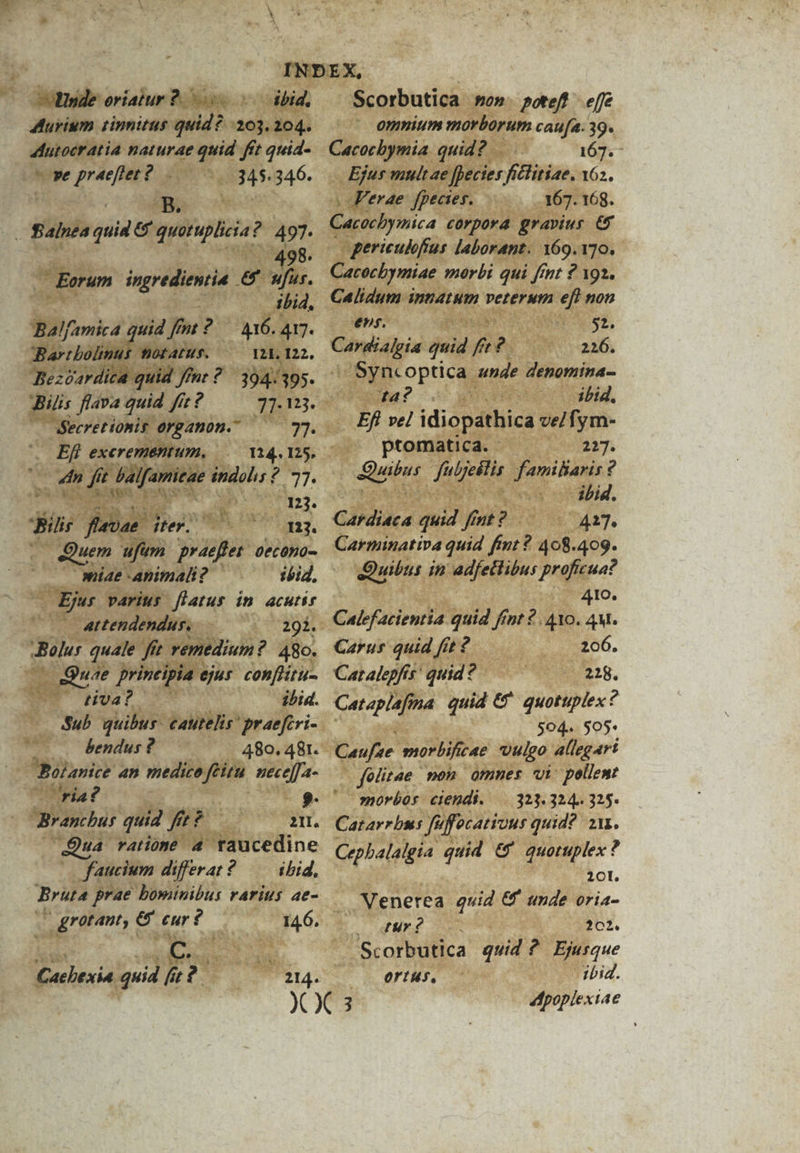 INDEX.
Unde oriatur ? ibid.
Aurium tinnitus quid? 203. 204.
Autocratia naturae quid ſit quid-
ve praeſtet ? 345. 346.
B.
Balnea quid & quotuplicia ? 497.
498.
Eorum ingredientia & uſus.
ibid.
Balſamica quid ſint ? 416. 417.
Bartholinus notatus. 121. 122.
Bezoardica quid ſint ? 394. 395.
Bilis flava quid ſit ? 77. 123.
Secretionis organon. 77.
Eſt excrementum. 124. 125.
An ſit balſamicae indolis ? 77.
123.
Bilis flavae iter. 123.
Quem uſum praeſtet oecono-
miae animali? ibid.
Ejus varius ſtatus in acutis
attendendus. 292.
Bolus quale ſit remedium ? 480.
Quae principia ejus conſtitu-
tiva ? ibid.
Sub quibus cautelis praeſcri-
bendus ? 480. 481.
Botanice an medico ſcitu neceſſa-
ria ? 9.
Branchus quid ſit ? 211.
Qua ratione a raucedine
faucium differat ? ibid.
Bruta prae hominibus rarius ae-
grotant, & cur ? 146.
C.
Cachexia quid ſit ? 214.
Scorbutica non poteſt eſſe
omnium morborum cauſa. 39.
Cacochymia quid? 167.
Ejus multae ſpecies fictitiae. 162.
Verae ſpecies. 167. 168.
Cacochymica corpora gravius &
periculoſius laborant. 169. 170.
Cacochymiae morbi qui ſint ? 192.
Calidum innatum veterum eſt non
ens. 52.
Cardialgia quid ſit ? 226.
Syncoptica unde denomina-
ta ? ibid.
Eſt vel idiopathica vel ſym-
ptomatica. 227.
Quibus ſubjectis familiaris ?
ibid.
Cardiaca quid ſint ? 427.
Carminativa quid ſint ? 408. 409.
Quibus in adfectibus proficua?
410.
Calefacientia quid ſint ? 410. 411.
Carus quid ſit ? 206.
Catalepſis quid ? 228.
Cataplaſma quid & quotuplex ?
504. 505.
Cauſae morbificae vulgo allegari
ſolitae non omnes vi pollent
morbos ciendi. 323. 324. 325.
Catarrhus ſuffocativus quid? 211.
Cephalalgia quid & quotuplex ?
201.
Venerea quid & unde oria-
tur ? 202.
Scorbutica quid ? Ejusque
ortus. ibid.
)( )( 3 Apoplexiae